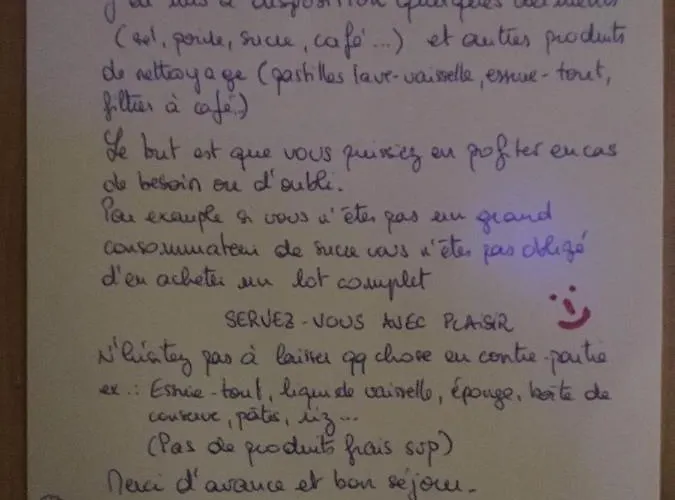 j'ai mis à disposition quelques
(sel, poivre, sucre, café...) et autres produits
de nettoyage (pastilles lave-vaisselle, essuie-tout,
filtres à café)
Le but est que vous puissiez en profiter en cas
de besoin ou d'oubli.
Par exemple si vous n'êtes pas un grand
consommateur de sucre vous n'êtes pas obligé
d'en acheter un lot complet
SERVEZ-VOUS AVEC PLAISIR
N'hésitez pas à laisser qq chose en contre-partie
ex.: Essuie-tout, liquide vaisselle, éponge, boîte de
conserve, pâtes, riz...
(Pas de produits frais svp)
Merci d'avance et bon séjour.